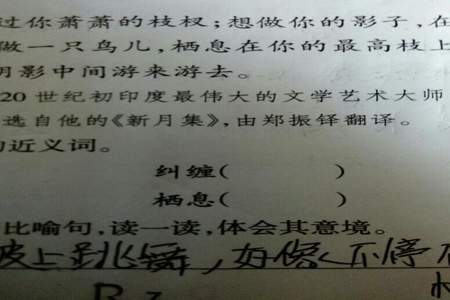 过你萧萧的枝杈；想做你的影子，在
做一只鸟儿，栖息在你的最高枝上
阴影中间游来游去。
20世纪初印度最伟大的文学艺术大师
选自他的《新月集》，由郑振铎翻译。
近义词。
纠缠(  )
栖息(  )
比喻句，读一读，体会其意境。
波上跳舞，好像不停